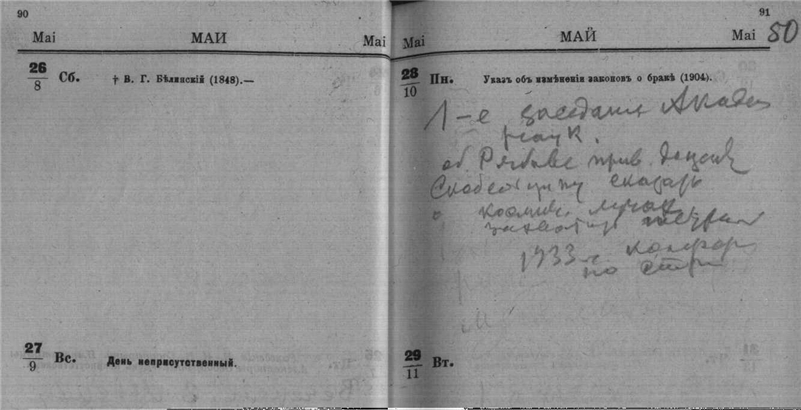 90
Mai МАИ Mai
26/8 Сб. † В. Г. Бѣлинскій (1848).—
27/9 Вс. День неприсутственный.
91
Mai МАЙ Mai 50
28/10 Пн. Указъ объ измѣненіи законовъ о бракѣ (1904).
1-е заседание Академ
наук.
об
сказать
о космич. лучах
1933 г. конфер
по
29/11 Вт.